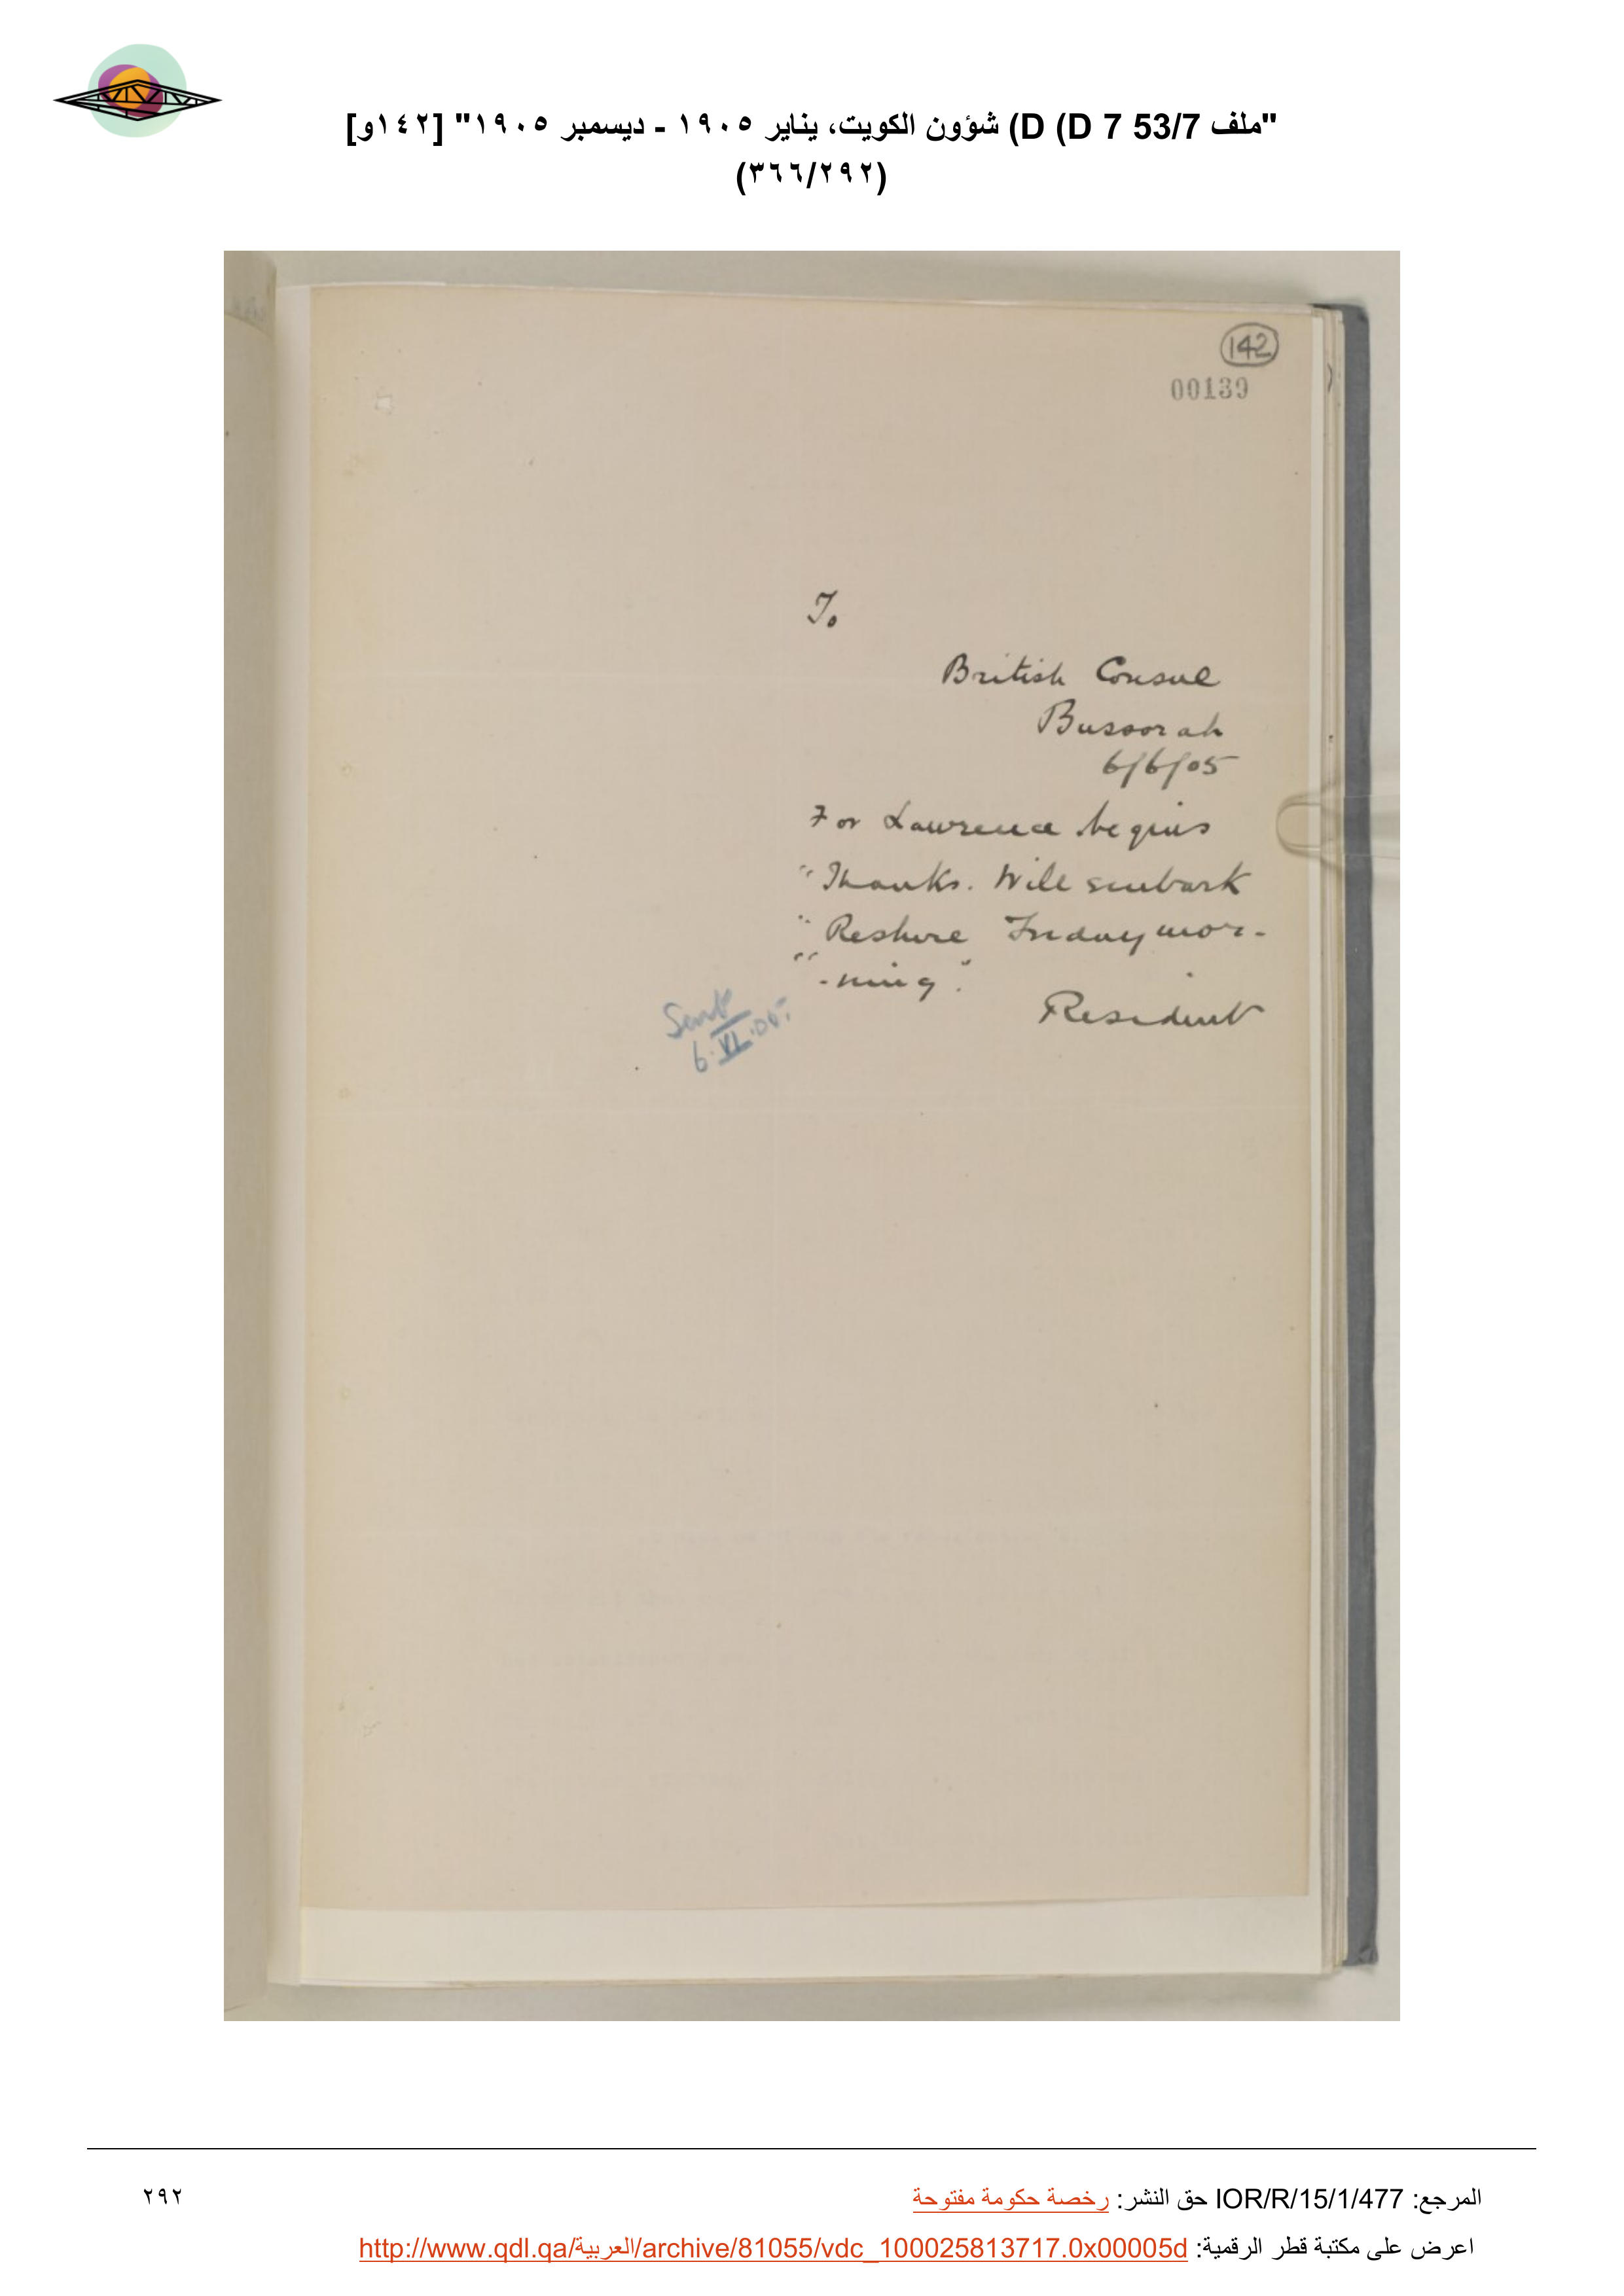 "ملف 53/7 D (D 7) شؤون الكويت، يناير ١٩٠٥ - ديسمبر ١٩٠٥" [١٤٢و]
(٣٦٦/٢٩٢)
142
00139
To
British Consul
Bussorah
6/6/05
For Lawrence begins
"Thanks. Will embark
" Reshire Friday mor-
" -ning".
Resident
Sent
6.VI.05.
المرجع: IOR/R/15/1/477 حق النشر: رخصة حكومة مفتوحة
٢٩٢
اعرض على مكتبة قطر الرقمية: http://www.qdl.qa/العربية/archive/81055/vdc_100025813717.0x00005d